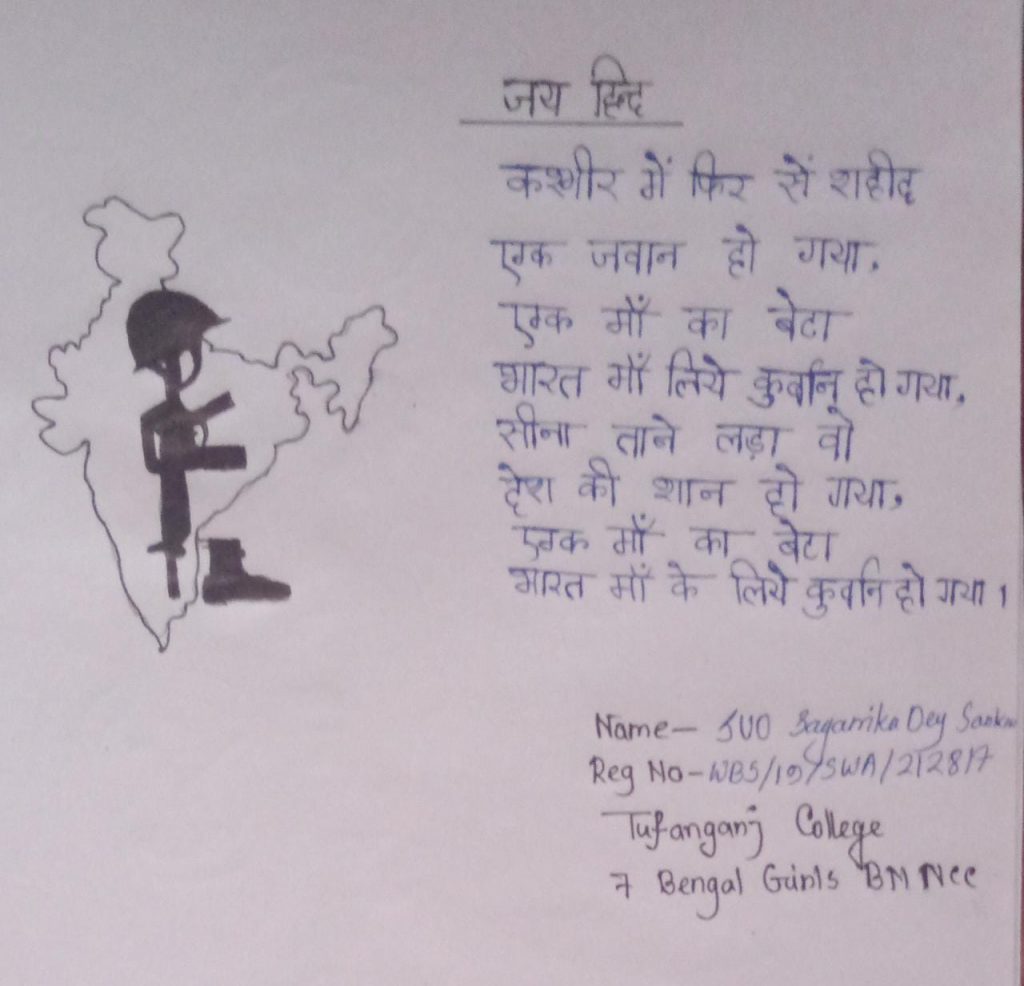 जय हिन्द
कश्मीर में फिर सें शहीद
एक जवान हो गया,
एक माँ का बेटा
भारत माँ लिये कुर्बान हो गया,
सीना ताने लड़ा वो
देश की शान हो गया,
एक माँ का बेटा
भारत माँ के लिये कुर्बान हो गया।
Name- JUO Sagarrika Dey Sarkar
Reg No-WBS/19/SWA/212817
Tufanganj College
7 Bengal Girls BN NCC